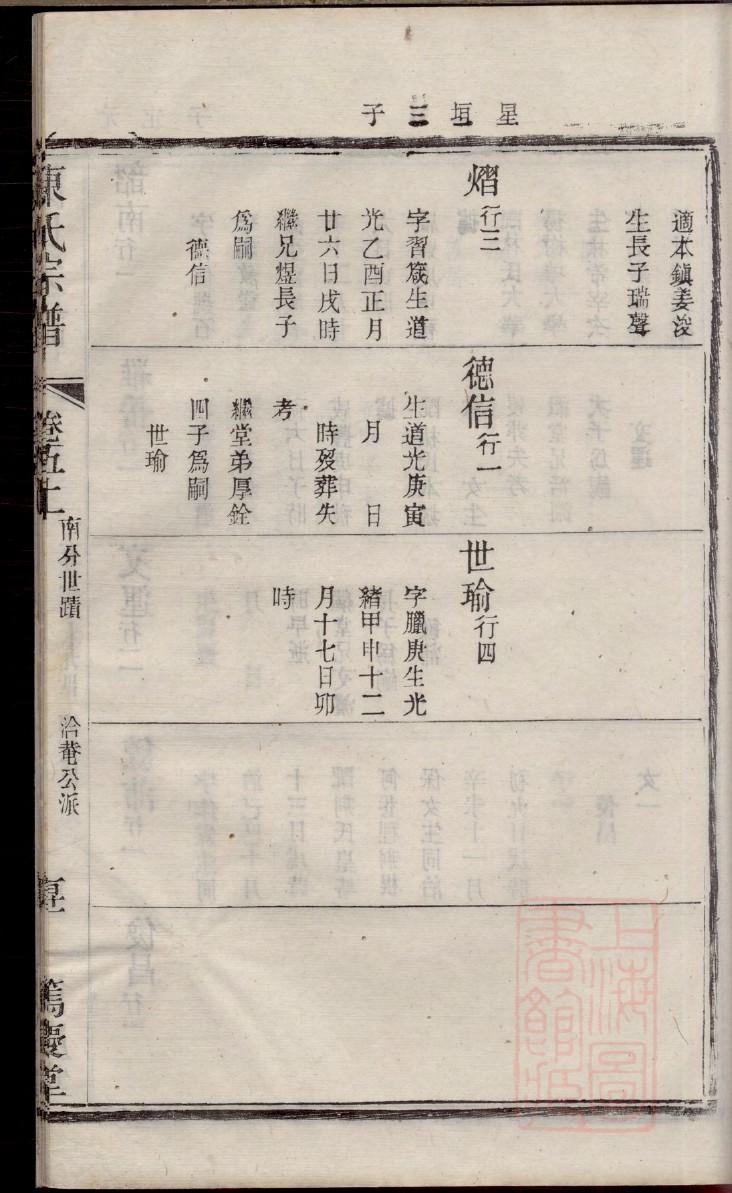 星垣三子
適本鎮姜浚
生長子瑞聲
熠行三
字習箴生道
光乙酉正月
廿六日戌時
繼兄煜長子
爲嗣
德信
德信行一
生道光庚寅
月日
時歿葬失
考
繼堂弟厚銓
四子爲嗣
世瑜
世瑜行四
字臘庚生光
緒甲申十二
月十七日卯
時
陳氏宗譜
卷五上
南分世蹟
洽菴公派
篤慶堂
上海圖
書館藏